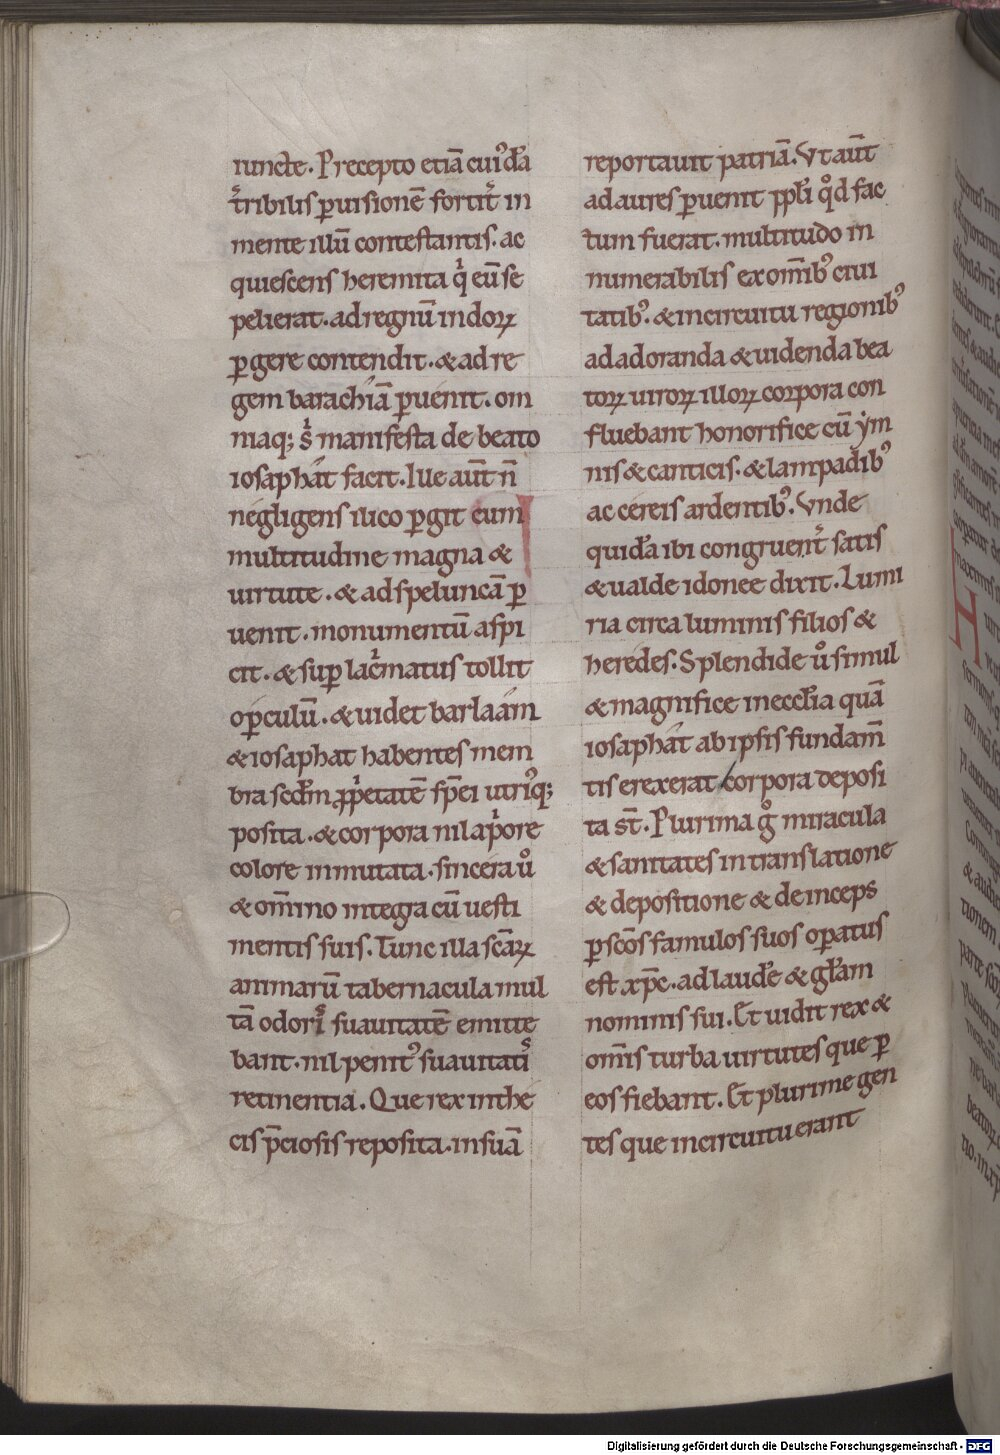 iuncte. Precepto etiā cuiꝰdā
t̄ribilis ꝑ uisionē fortit̄ in
mente illū contestantis. ac
quiescens heremita q̇ eū se
pelierat. ad regnū indoꝝ
ꝑgere contendit. & ad re
gem barachiā ꝑuenit. om
niaq; s̄ manifesta de beato
iosaphat facit. Ille aut̄ n̄
negligens ilico ꝑgit cum
multitudine magna &
uirtute. & ad speluncā ꝑ
uenit. monumentū aspi
cit. & suꝑ lac̄matus tollit
oꝑculū. & uidet barlaam
& iosaphat habentes mem
bra scdm ꝓp̄etatē sp̄ei utriꝰq;
posita. & corpora nil ap̄ore
colore inmutata. sincera ů
& om̄ino integra cū uesti
mentis suis. Tunc illa scāꝝ
animarū tabernacula mul
tā odoris suauitatē emitte
bant. nil penitꝰ suauitatis
retinentia. Que rex in the
cis p̄ciosis reposita. in suā
reportauit patriā. Vt aut̄
ad aures ꝑuenit ppl̄i qd̊ fac
tum fuerat. multitudo in
numerabilis ex om̄ibꝰ ciui
tatibꝰ. & in circuitu regionibꝰ
ad adoranda & uidenda bea
toꝝ uiroꝝ illoꝝ corpora con
fluebant honorifice cū ẏm
nis & canticis. & lampadibꝰ
ac cereis ardentibꝰ. Vnde
quidā ibi congruent̄ satis
& ualde idonee dixit. Lumi
ria circa luminis filios &
heredes. Splendide ů simul
& magnifice in eccl̄ia quā
iosaphat ab ipsis fundam̄
tis erexerat corpora deposi
ta st̄. Plurima g̊ miracula
& sanitates in translatione
& depositione & deinceps
ꝑ scōs famulos suos oꝑatus
est xp̄c. ad laudē & gl̄am
nominis sui. Et uidit rex &
om̄is turba uirtutes que ꝑ
eos fiebant. Et plurime gen
tes que in circuitu erant
Digitalisierung gefördert durch die Deutsche Forschungsgemeinschaft - DFG